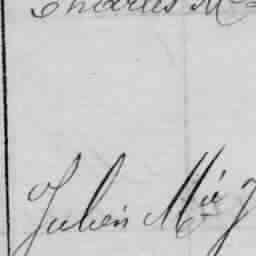 Charles M
Julien Mie J